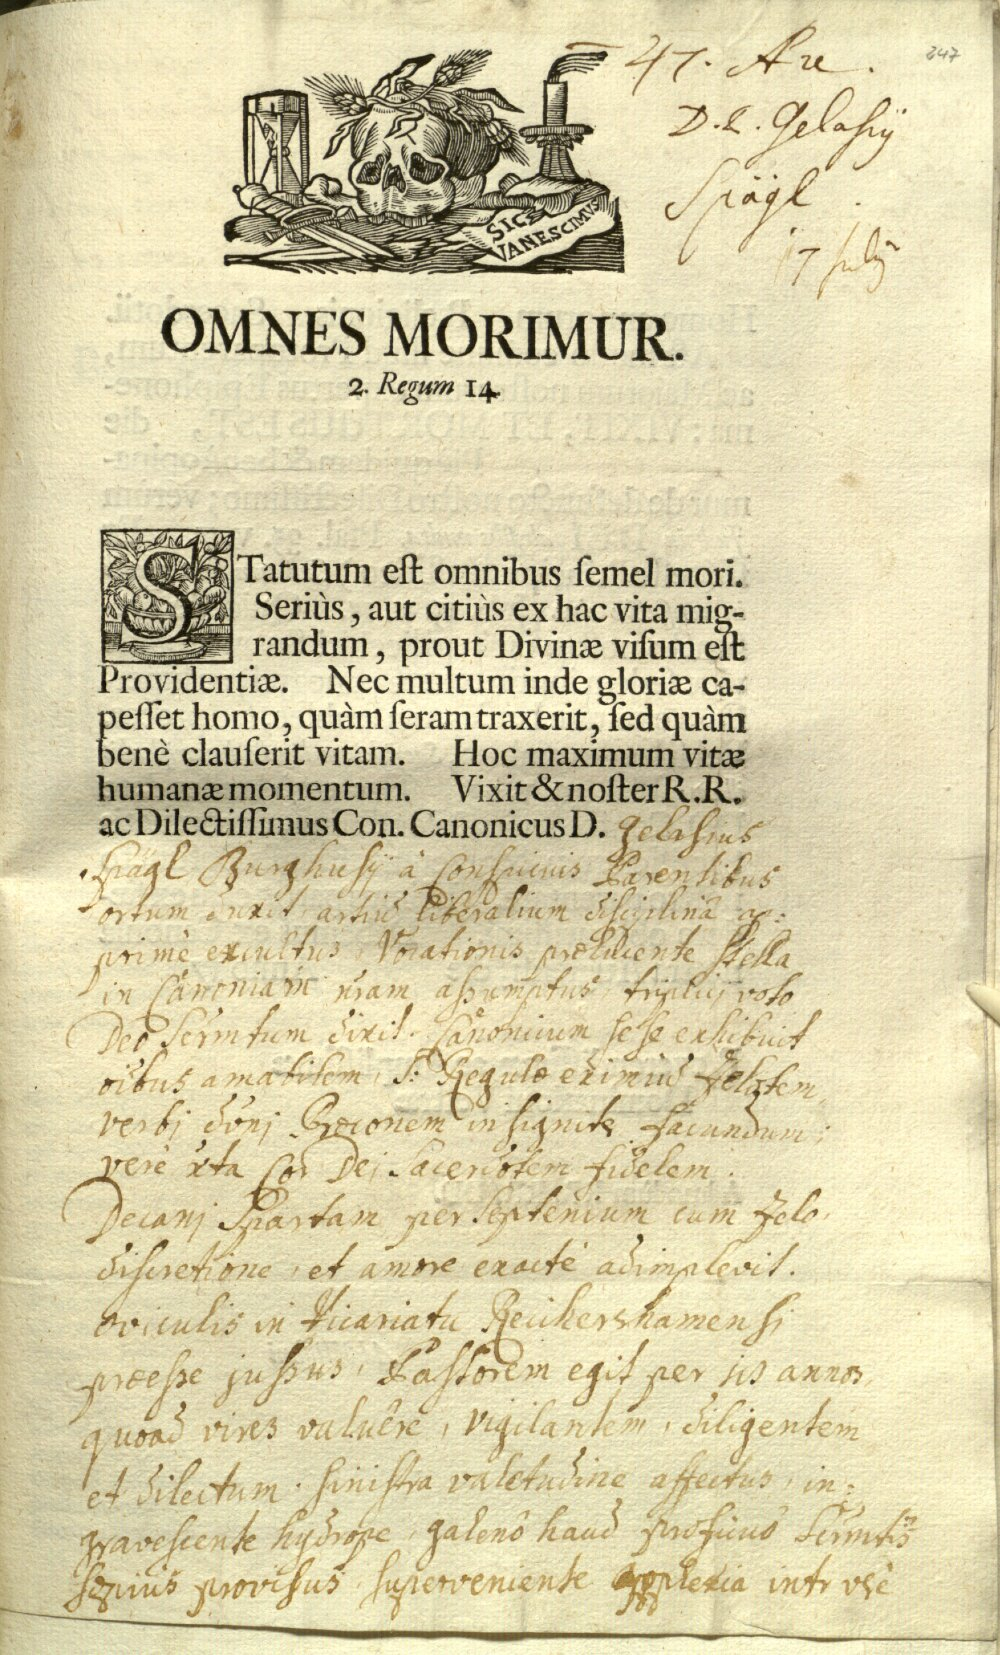 247
47. Are.
D. L. Gelasÿ
Spägl.
17 july
SIC
VANESCIMUS
OMNES MORIMUR.
2. Regum 14.
STatutum eſt omnibus ſemel mori.
Seriùs, aut citiùs ex hac vita mig-
randum, prout Divinæ viſum eſt
Providentiæ. Nec multum inde gloriæ ca-
peſſet homo, quàm ſeram traxerit, ſed quàm
benè clauſerit vitam. Hoc maximum vitæ
humanæ momentum. Vixit & noſter R. R.
ac Dilectiſſimus Con. Canonicus D. Gelasius
Spägl Burghusÿ à Conspicuis Parentibus
ortum duxit, artiũ liberalium disciplinâ ap:
primè excultus, Vocationis prælucente Stella
in Canoniam nr̃am assumptus, triplici voto
Deo Sacrm̃tum dixit. Canonicum sese exhibuit
oĩbus amabilem, S: Regulæ eximiũ Zelotem,
verbi dñi Præconem insigniter facundum;
verè iuxta Cor Dei Sacerdotem fidelem.
Decani Spartam per Septenium cum Zelo,
discretione, et amore exactè adimplevit.
oviculis in Vicariatu Reichershamensi
præesse jussus, Pastorem egit per annos,
quoad vires valuêre, vigilantem, diligentem
et dilectum. sinistra valetudine affectus, in:
gravescente hydrope, galeno haud proficuo Sacrm̃tis
sæpius provisus, superveniente apoplexia